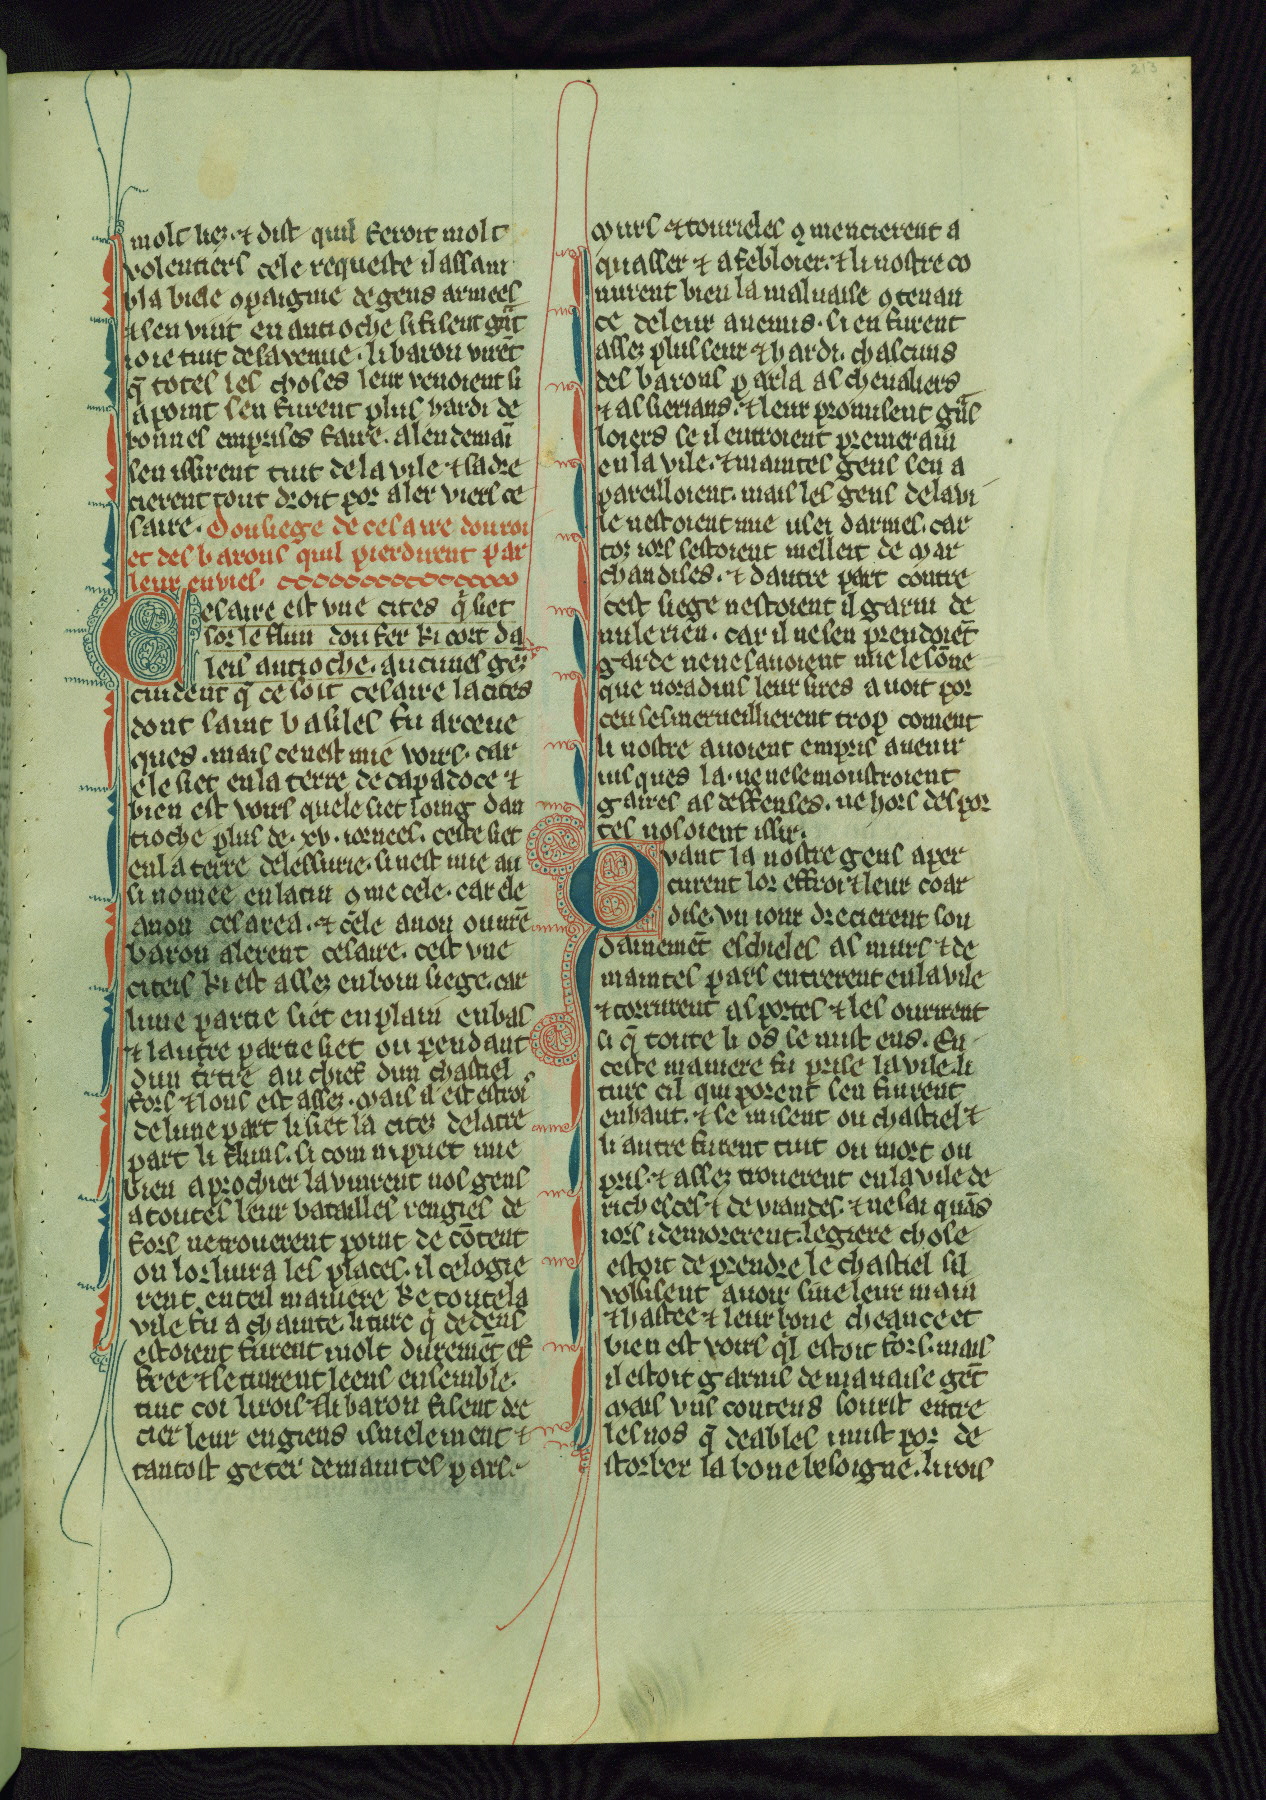 213
molt liez ⁊ dist quil feroit molt
volentiers cele requeste il assam
bla biele ꝯpaignie de gens armees
⁊ sen vint en antioche si fisent gñt
ioie tuit de sa venue · li baron virēt
q̄ totes les choses leur venoient si
a point sen furent plus hardi de
bonnes emprises faire · a lendemaī
sen issirent tuit de la vile ⁊ sadre
cierent tout droit por aler viers ce
saire · Dou siege de cesaire dou roi
et des barons quil pierdirent par
leur envies ·
Cesaire est vne cites q̄ siet
sor le flun dou fer ki cort da
leis antioche · aucunes gēz
cuident q̄ ce soit cesaire la cites
dont saint basiles fu arceue
ques · mais ce nest mie voirs · car
ele siet en la terre de capadoce ⁊
bien est voirs quele siet loing dan
tioche plus de · xv · iornees · ceste siet
en la terre de lessurie · si nest mie au
si nomee en latin ꝯme cele · car ele
a non cesarea · ⁊ cele a non ou nr̄e
baron alerent cesaire · cest vne
citeis ki est assez en boin siege · car
lune partie siet en plain en bas
⁊ lautre partie siet ou pendant
dun tertre au chief dun chastiel
fors ⁊ lons est assez · mais il est estroi
de lune part li siet la citez de latre
part li fluns · si com il puet mie
bien aprochier la vinrent nos gens
a toutes leur batailles rengies de
fors ne trouerent point de cōtent
ou lor liura les places · il se logie
rent en teil maniere ke toute la
vile fu achainte · li turc q̄ dedens
estoient furent molt duremēt ef
freé ⁊ se turent leens ensemble ·
tuit coi li rois ⁊ li baron fisent dre
cier leur engiens isnielement ⁊
tantost geter de maintes pars ·
Murs ⁊ tourieles ꝯmencierent a
quasser ⁊ afebloier · ⁊ li nostre co
nurent bien la maluaise ꝯtenan
ce de leur anemis · si en furent
assez plus seur ⁊ hardi · chascuns
des barons parla as cheualiers
⁊ as sierians · ⁊ leur promisent gñs
loiers se il entroient premerain
en la vile · ⁊ maintes gens sen a
pareilloient · mais les gens de la vi
le nestoient mie usei darmes · car
toz iors sestoient melleit de mar
chandises · ⁊ dautre part contre
cest siege nestoient il garni de
nule rien · car il ne sen prendoiēt
garde ne ne sauoient mie le sōne
que noradins leur sires auoit por
ceu se smerueillierent trop coment
li nostre auoient empris a uenir
iusques la · ne ne se moustroient
gaires as deffenses · ne hors des por
tes nosoient issir ·
Quant la nostre gens aper
curent lor effroi ⁊ leur coar
dise · vn iour drecierent sou
dainemēt eschieles as murs ⁊ de
maintes pars entrerent en la vile
⁊ corrurent as portes ⁊ les ourirent
si q̄ toute li os se mist ens · En
ceste maniere fu prise la vile · li
turc cil qui porent sen fuirent
en haut · ⁊ se misent ou chastiel ⁊
li autre furent tuit ou mort ou
pris · ⁊ assez trouerent en la vile de
richesces ⁊ de viandes · ⁊ ne sai quās
iors i demorerent · legiere chose
estoit de prendre le chastiel sil
volsisent auoir siue leur main
⁊ hastee ⁊ leur bone cheance et
bien est voirs q̄l estoit fors · mais
il estoit garnis de mauaise gēt
Mais vns contens sourst entre
les nos q̄ deables i mist por de
storber la bone besoigne · li rois